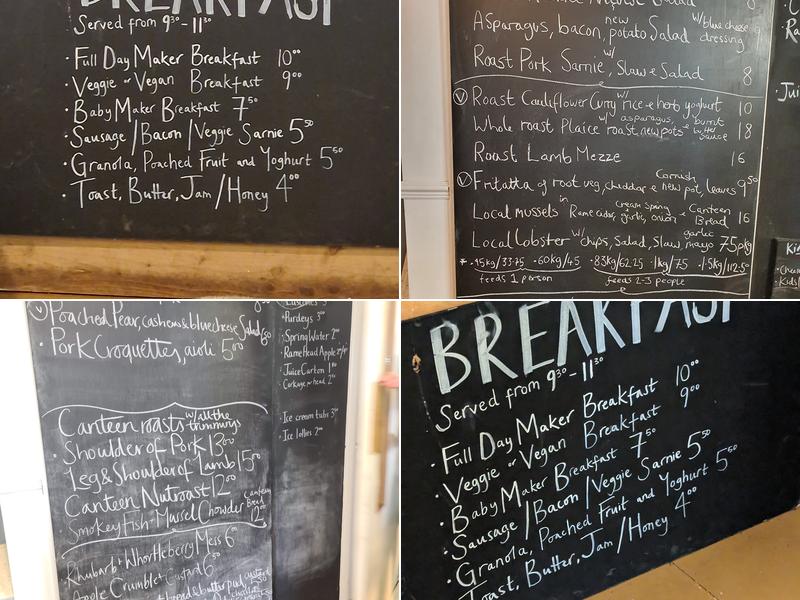 BREAKFAST
Served from 9³⁰-11³⁰
· Full Day Maker Breakfast 10⁰⁰
· Veggie or Vegan Breakfast 9⁰⁰
· Baby Maker Breakfast 7⁵⁰
· Sausage/Bacon/Veggie Sarnie 5⁵⁰
· Granola, Poached Fruit and Yoghurt 5⁵⁰
· Toast, Butter, Jam/Honey 4⁰⁰
Asparagus, bacon, new potato Salad w/blue cheese dressing
Roast Pork Sarnie, w/ Slaw & Salad 8
Ⓥ Roast Cauliflower Curry w/ rice & herb yoghurt 10
Whole roast Plaice w/ asparagus, roast new pots & burnt butter sauce 18
Roast Lamb Mezze 16
Ⓥ Frittatta of root veg, cheddar & Cornish new pot, leaves 9⁵⁰
Local mussels in Rame cider, cream, spring garlic, onion & Canteen Bread 16
Local lobster w/ chips, Salad, Slaw, garlic mayo 75pkg
* ·45kg/33·75 ·60kg/45 ·83kg/62·25 ·1kg/75 ·1·5kg/112·50
feeds 1 person feeds 2-3 people
Ⓥ Poached Pear, cashews & blue cheese Salad
· Pork Croquettes, aioli 5⁰⁰
Canteen roasts w/ all the trimmings
· Shoulder of Pork 13⁰⁰
· Leg & Shoulder of Lamb 15⁰⁰
Canteen Nutroast 12⁰⁰
Smokey Fish + Mussel Chowder Canteen Bread 12⁰⁰
Rhubarb + Whortleberry Mess 6⁰⁰
Apple Crumble + Custard 6⁵⁰
bread & butter pud custard
· Purdeys 3⁰⁰
· Spring Water 2⁰⁰
· Rame Head Apple
· Juice Carton 1⁰⁰
· Corkage per head 2⁰⁰
· Ice cream tubs 3⁰⁰
· Ice lollies 2⁰⁰
BREAKFAST
Served from 9³⁰-11³⁰
· Full Day Maker Breakfast 10⁰⁰
· Veggie or Vegan Breakfast 9⁰⁰
· Baby Maker Breakfast 7⁵⁰
· Sausage/Bacon/Veggie Sarnie 5⁵⁰
· Granola, Poached Fruit and Yoghurt 5⁵⁰
· Toast, Butter, Jam/Honey 4⁰⁰